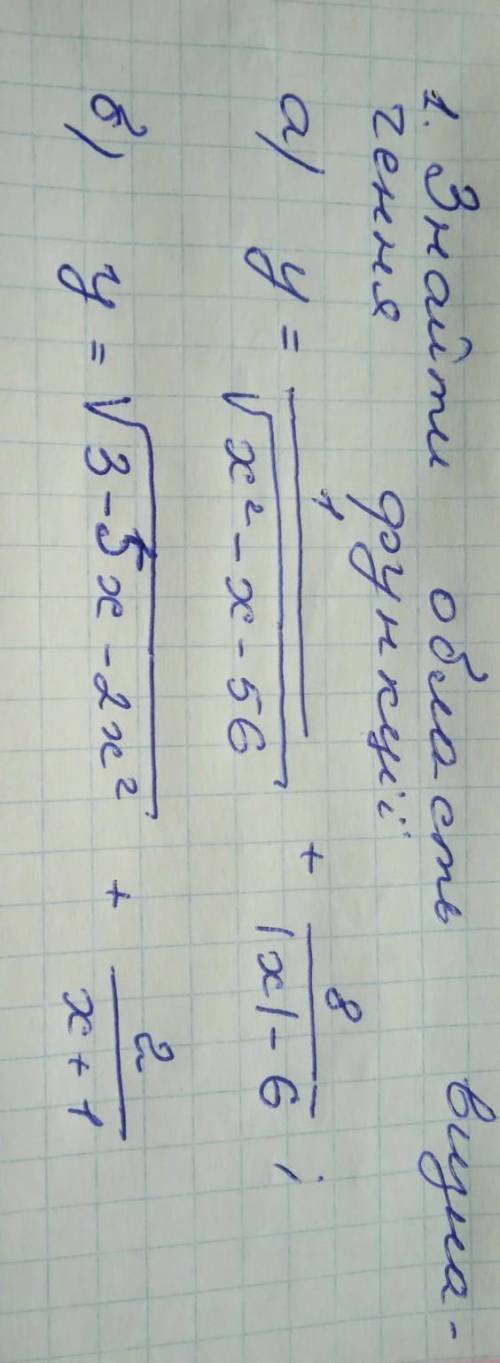 1. Знайти область визна-
чення функції
а) y = 1/√(x² - x - 56) + 8/(|x| - 6) ;
б) y = √(3 - 5x - 2x²) + 2/(x + 1)